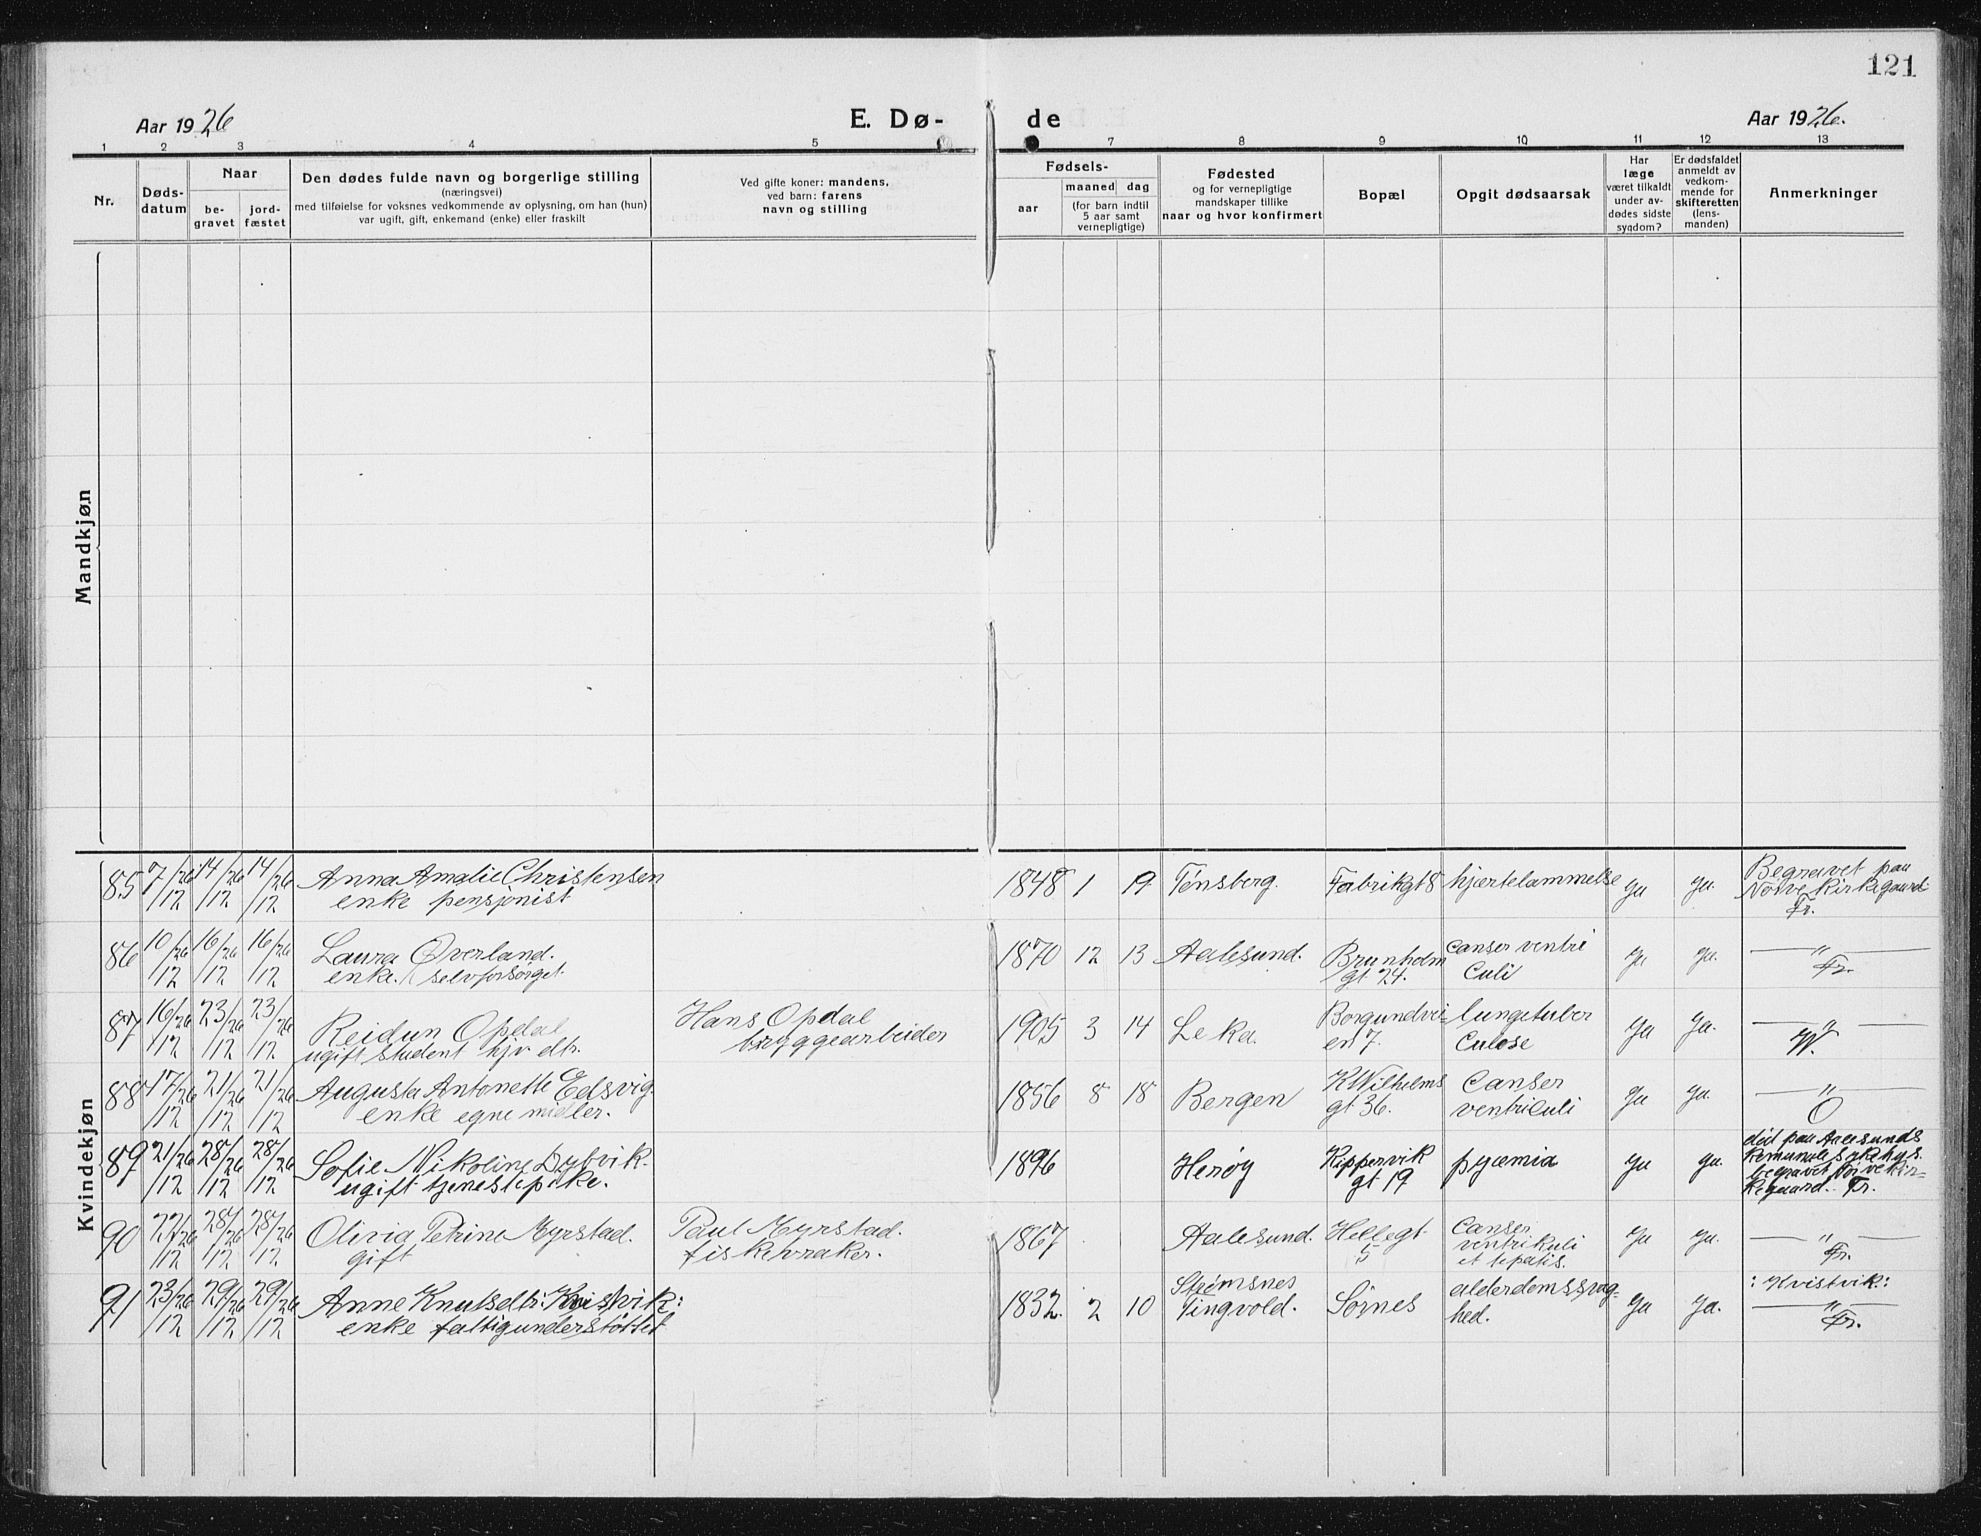 121
Aar 1926
E. Dø-
de
Aar 1926.
1 2 3 4 5 7 8 9 10 11 12 13
Nr.
Døds-
datum
Naar
be-
gravet
jord-
fæstet
Den dødes fulde navn og borgerlige stilling
(næringsvei)
med tilføielse for voksnes vedkommende av oplysning, om han (hun)
var ugift, gift, enkemand (enke) eller fraskilt
Ved gifte koner: mandens,
ved barn: farens
navn og stilling
Fødsels-
aar
maaned dag
(for barn indtil
5 aar samt
vernepligtige)
Fødested
og for vernepligtige
mandskaper tillike
naar og hvor konfirmert
Bopæl
Opgit dødsaarsak
Har
læge
været tilkaldt
under av-
dødes sidste
sygdom?
Er dødsfaldet
anmeldt av
vedkom-
mende for
skifteretten
(lens-
manden)
Anmerkninger
Mandkjøn
Kvindekjøn
85 7/12 26 14/12 26 14/12 26 Anna Amalie Christensen
enke pensjonist
1848 1 19 Tønsberg. Fabrikgt 8 hjertelammelse ja ja.
Begravet paa
Nørve kirkegaard
Fr.
86 10/12 26 16/12 26 16/12 26 Laura Øverland.
enke. selvforsørget.
1870 12 13 Aalesund. Brunholm
gt 24.
Canser ventri
culi
ja ja. — " —
Fr.
87 16/12 26 23/12 26 23/12 26 Reidun Opdal
ugift student hjv. dtr.
Hans Opdal
bryggearbeider
1905 3 14 Leka. Borgundvei-
en 7.
lungetuber
culose
ja ja. — " —
W.
88 17/12 26 21/12 26 21/12 26 Augusta Antonette Edsvig.
enke egne midler.
1856 8 18 Bergen K Wilhelms
gt 36.
Canser
ventriculi
ja ja. — " —
O
89 21/12 26 28/12 26 28/12 26 Sofie Nikoline Dybvik.
ugift tjenestepike.
1896 Herøy Kippervik
gt 19
pyæmia ja ja.
død paa Aalesunds
Komunale sykehus.
begravet Nørve kir-
kegaard. Fr.
90 22/12 26 28/12 26 28/12 26 Olivia Petrine Myrstad.
gift
Paul Myrstad.
fiskevraker.
1867 Aalesund. Hellegt.
5
Canser
ventrikuli
et hepatis.
ja ja. — " —
Fr.
91 23/12 26 29/12 26 29/12 26 Anne Knutsdtr: Kvistvik:
enke fattigunderstøttet
1832. 2 10
Tingvold. Sørnes alderdomssvag-
hed.
ja ja.
: Kvistvik:
— " —
Fr.